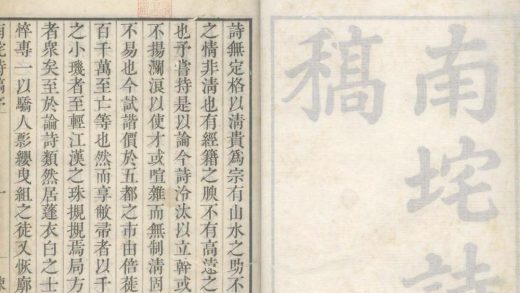 南垞詩
稿
詩無定格以清貴爲宗有山水之助不
之情非清也有經籍之腴不有高遠之
也予嘗持是以論今詩泠汰以立幹或
不揚瀾以使才或喧雜而無制清固
不易也今試諧價於五都之市由倍蓰
百千萬至亡等也然而享敝帚者以千
之小璣者至輕江漢之珠焉局方
者衆矣至於論詩類然居蓬衣白之士
專一以驕人影纓曳組之徒又恢廓
南垞詩稿序 一